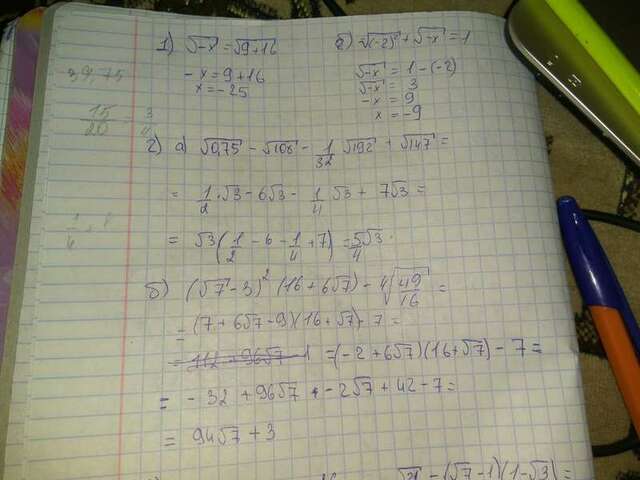 1) √-x = √9+16 б) √(-2)² + √-x = 1
-x = 9+16 √-x = 1 - (-2)
x = -25 √-x = 3
-x = 9
x = -9
39,75
15/20 = 3/4
2) а) √0,75 - √108 - 1/32 √192 + √147 =
= 1/2 · √3 - 6√3 - 1/4 √3 + 7√3 =
= √3 (1/2 - 6 - 1/4 + 7) = 5/4 √3
б) (√7 - 3)² (16 + 6√7) - 4√49/16 =
= (7 + 6√7 - 9)(16 + √7) - 7 =
= 112 + 96√7 = (-2 + 6√7)(16 + √7) - 7 =
= -32 + 96√7 - 2√7 + 42 - 7 =
= 94√7 + 3
- (√7 - 1)(1 - √3) =